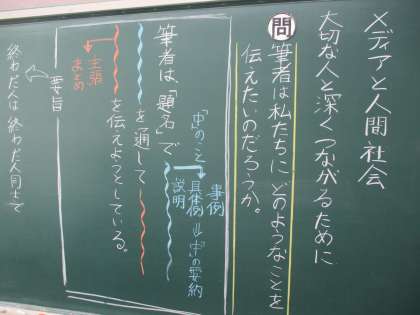 メディアと人間社会
大切な人と深くつながるために
問 筆者は私たちにどのようなことを
伝えたいのだろうか。
事例
具体例⇒「中」の要約
説明
「中」のこと
筆者は「題名」で
を通して
を伝えようとしている。
主張
まとめ
要旨
終わた人は 終わた人同士で